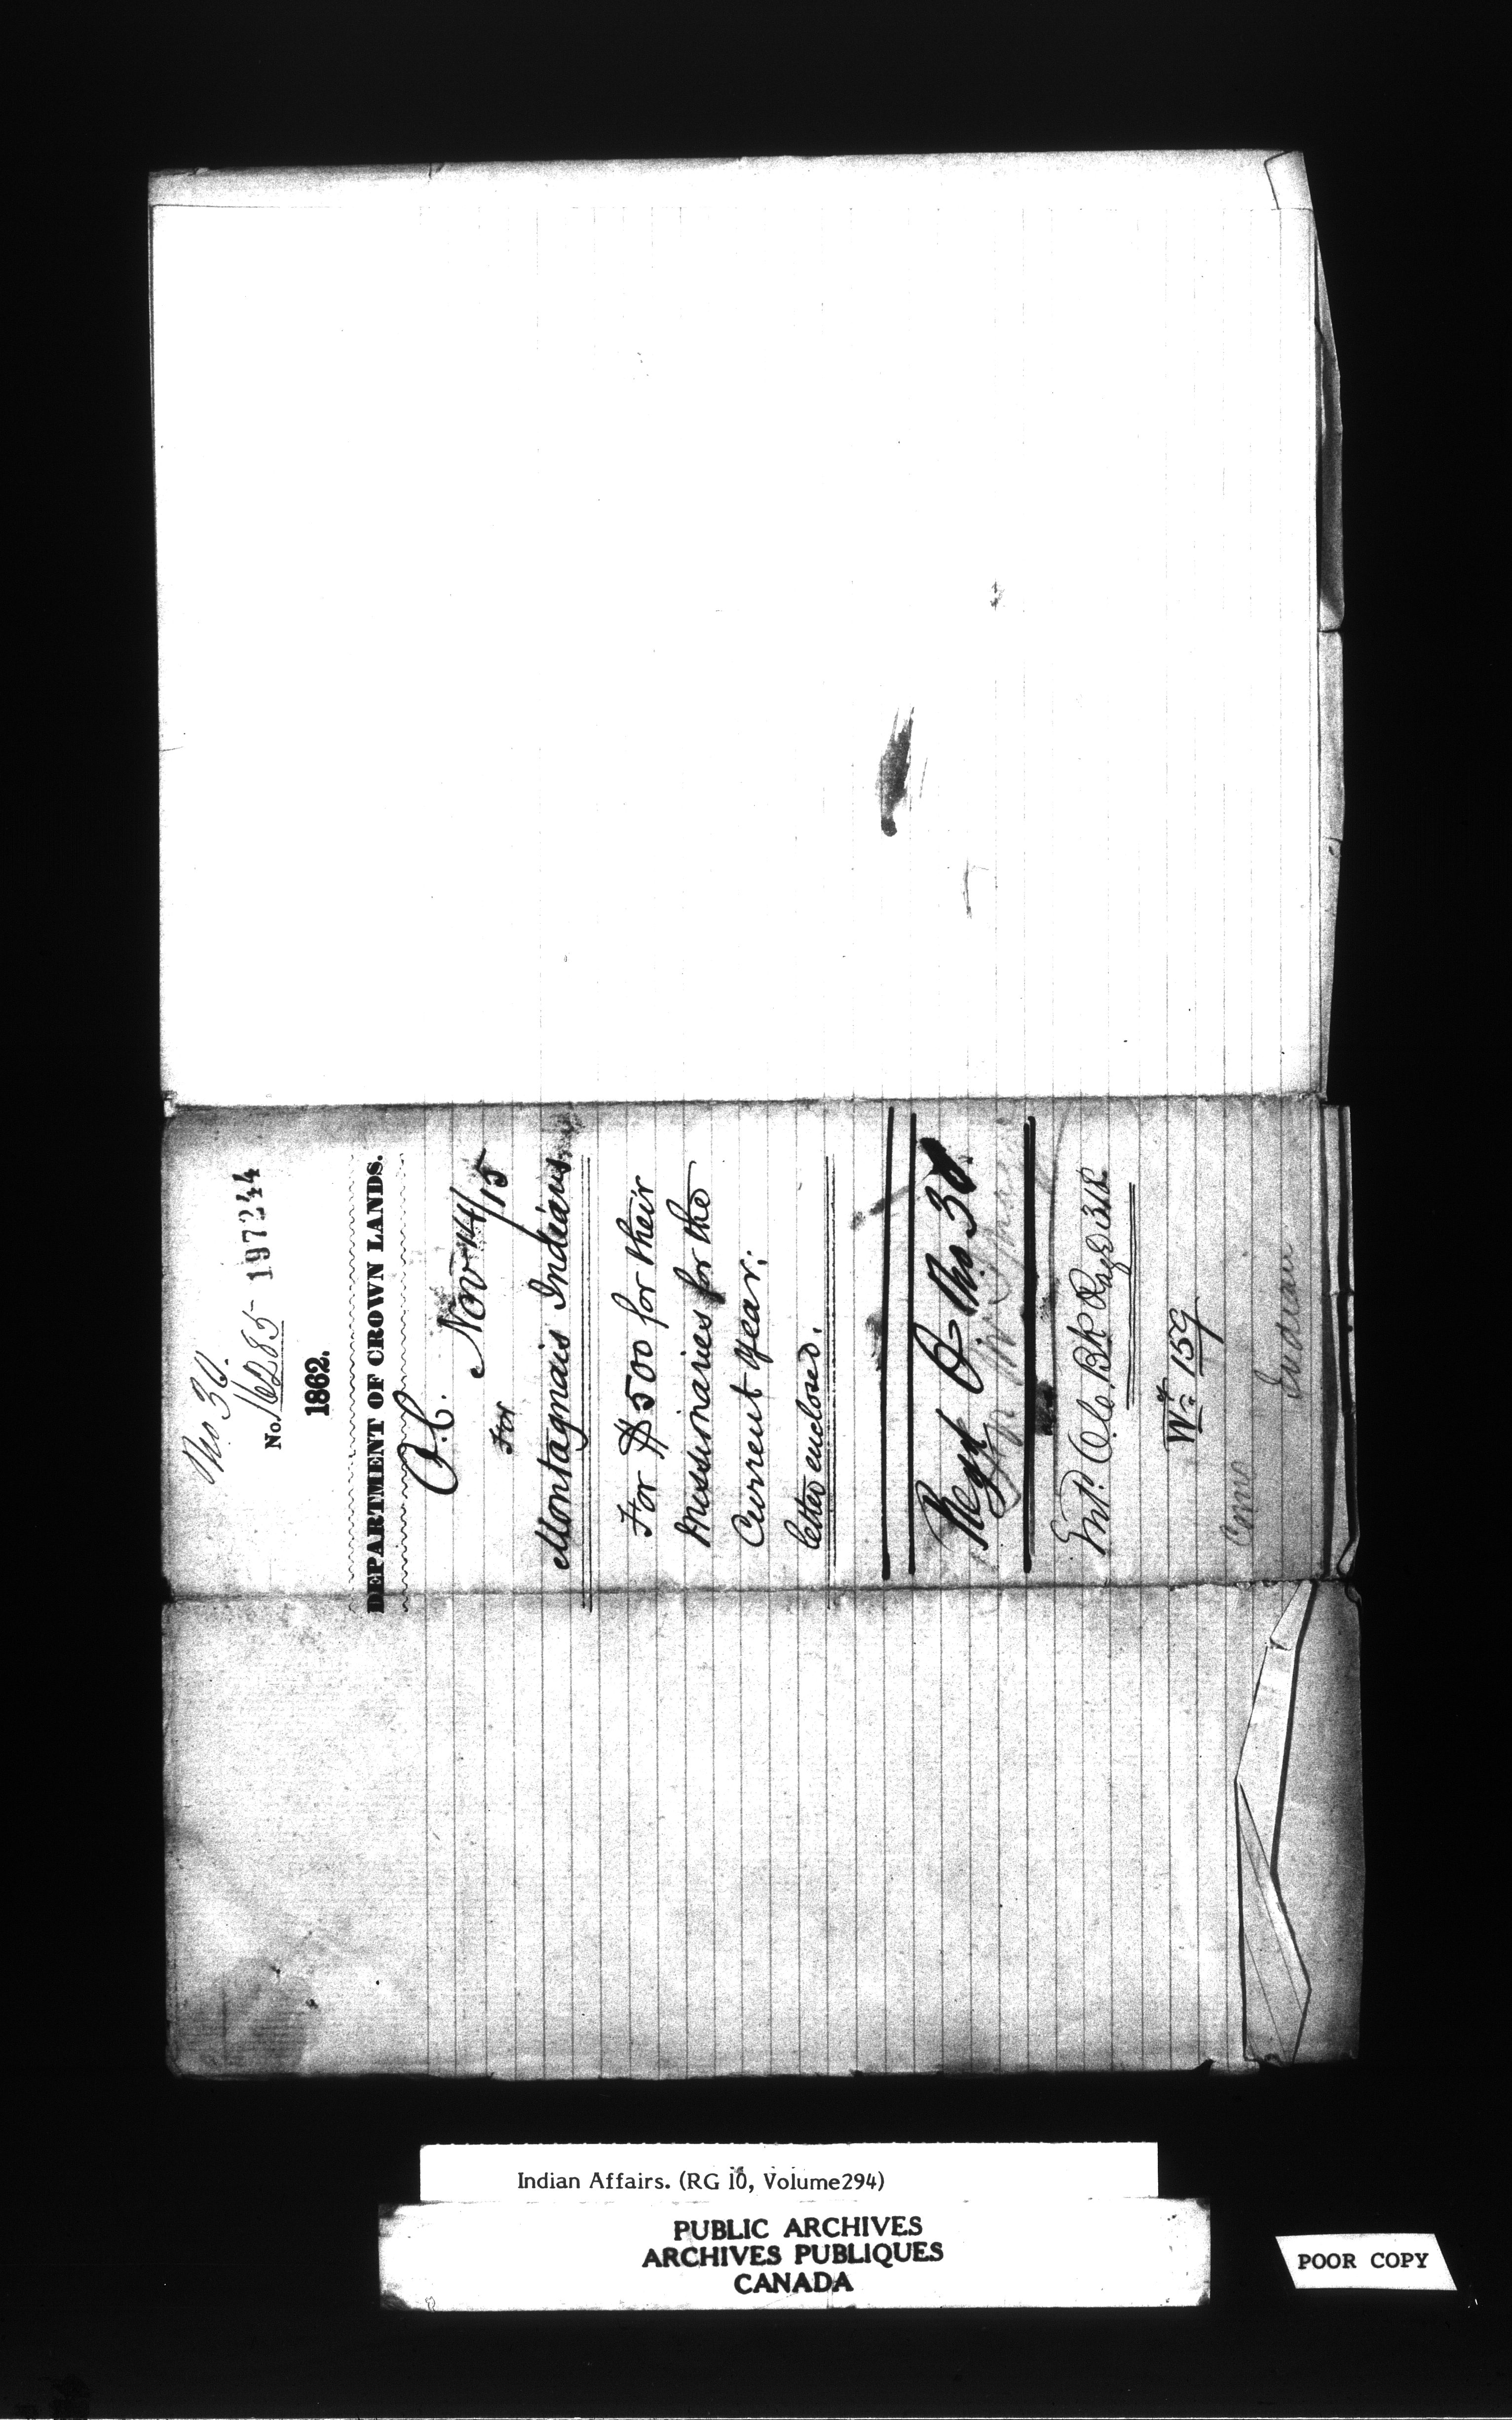 No. 30.
No. 16285 197244
1862.
DEPARTMENT OF CROWN LANDS.
O.C. Nov 14/15
For
Montagnais Indians.
For $500 for their
Missionaries for the
Current year.
letter enclosed.
Regd O No. 30.
Entd. O.C. Bk Page 318
Wt. 159
Indian
Indian Affairs. (RG 10, Volume294)
PUBLIC ARCHIVES
ARCHIVES PUBLIQUES
CANADA
POOR COPY